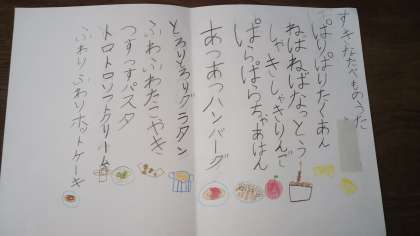 すきなたべものうた
ぱりぱりたくあん
ねはねばなっとう
しゃきしゃきりんご
ぱらぱらちゃあはん
あつあつハンバーグ
とろりとろりグラタン
ふわふわたこやき
つすっすパスタ
トロトロソフトクリーム
ふわりふわりホットケーキ